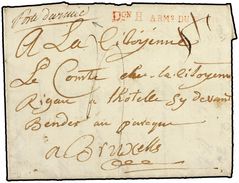 Porte d'avance
Don H ARM. DU
A La Citoyenne
Le Comte che la Citoyenne
Rigau a lhotelle Sy devant
Bender au parque
a Bruxels